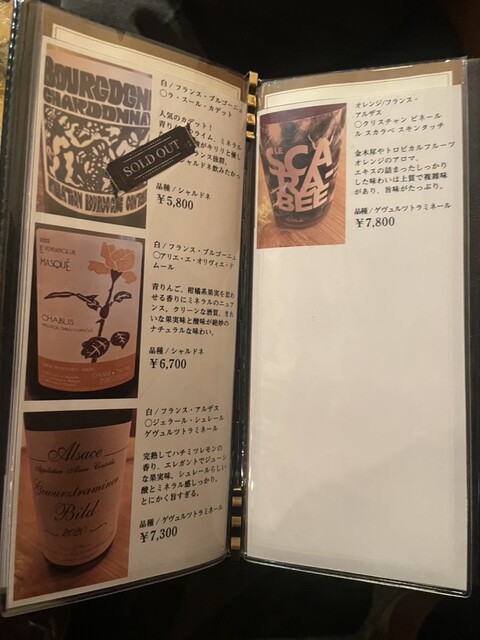 BOURGOGNE
CHARDONNAY
白/フランス・ブルゴーニュ
〇ラ・スール・カデット
人気のカデット！
SOLD OUT
品種/シャルドネ
¥5,800
MASQUÉ
CHABLIS
白/フランス・ブルゴーニュ
〇アリエ・エ・オリヴィエ・ド
ムール
青りんご、柑橘系果実を思わ
せる香りにミネラルのニュア
ンス。クリーンな酒質、きれ
いな果実味と酸味が絶妙の
ナチュラルな味わい。
品種/シャルドネ
¥6,700
Alsace
Gewurztraminer
Bild
2020
白/フランス・アルザス
〇ジェラール・シュレール
ゲヴュルツトラミネール
完熟してハチミツレモンの
香り。エレガントでジューシー
な果実味。シュレールらしい
酸とミネラル感しっかり。
とにかく旨すぎる。
品種/ゲヴュルツトラミネール
¥7,300
LE
SCA
RA
BEE
オレンジ/フランス・
アルザス
〇クリスチャン ビネール
ル スカラベ スキンタッチ
金木犀やトロピカルフルーツ
オレンジのアロマ。
エキスの詰まったしっかり
した味わいは上質で複雑味
があり、旨味がたっぷり。
品種/ゲヴュルツトラミネール
¥7,800